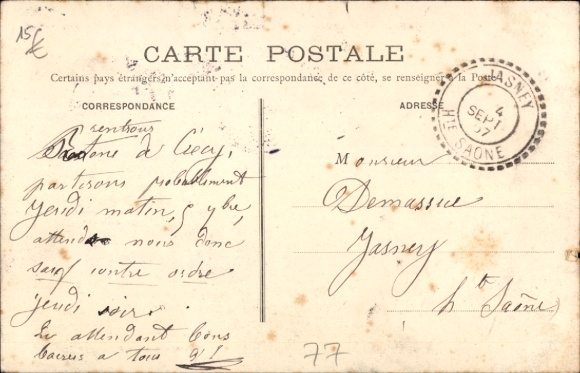 15€
CARTE POSTALE
Certains pays étrangers n'acceptant pas la correspondance de ce côté, se renseigner à la Poste
CORRESPONDANCE
ADRESSE
JASNEY
4
SEPT
07
HTE SAONE
rentrons
de
partirons probablement
Jeudi matin, 5 7bre
attendez nous donc
sauf contre ordre
jeudi soir.
En attendant bons
baisers a tous
Monsieur
Demassue
Jasney
hte Saône
77